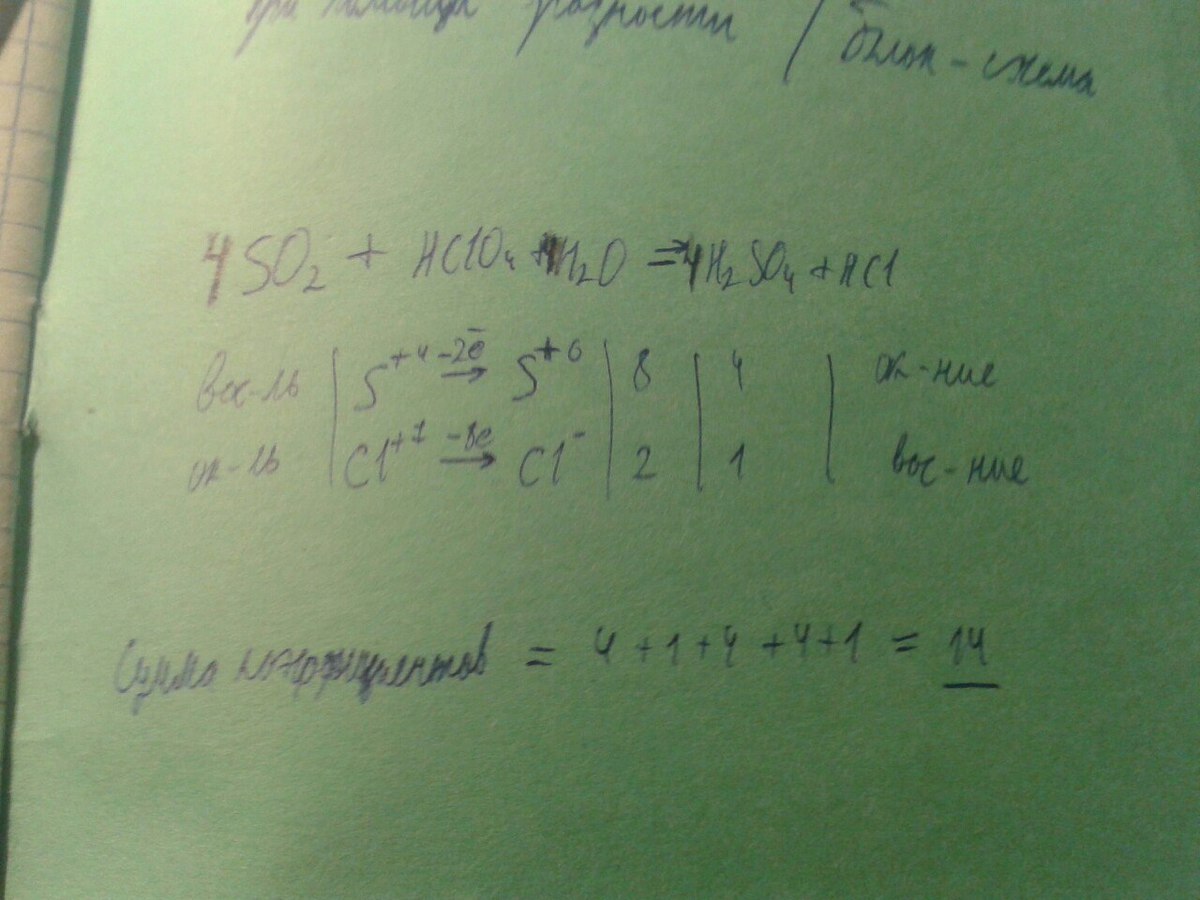 при помощи разности / блок-схема
4SO₂ + HClO₄ + 4H₂O = 4H₂SO₄ + HCl
вос-ль | S⁺⁴ -2e̅→ S⁺⁶ | 8 | 4 | ок-ние
ок-ль | Cl⁺⁷ -8e→ Cl⁻ | 2 | 1 | вос-ние
Сумма коэффициентов = 4 + 1 + 4 + 4 + 1 = 14